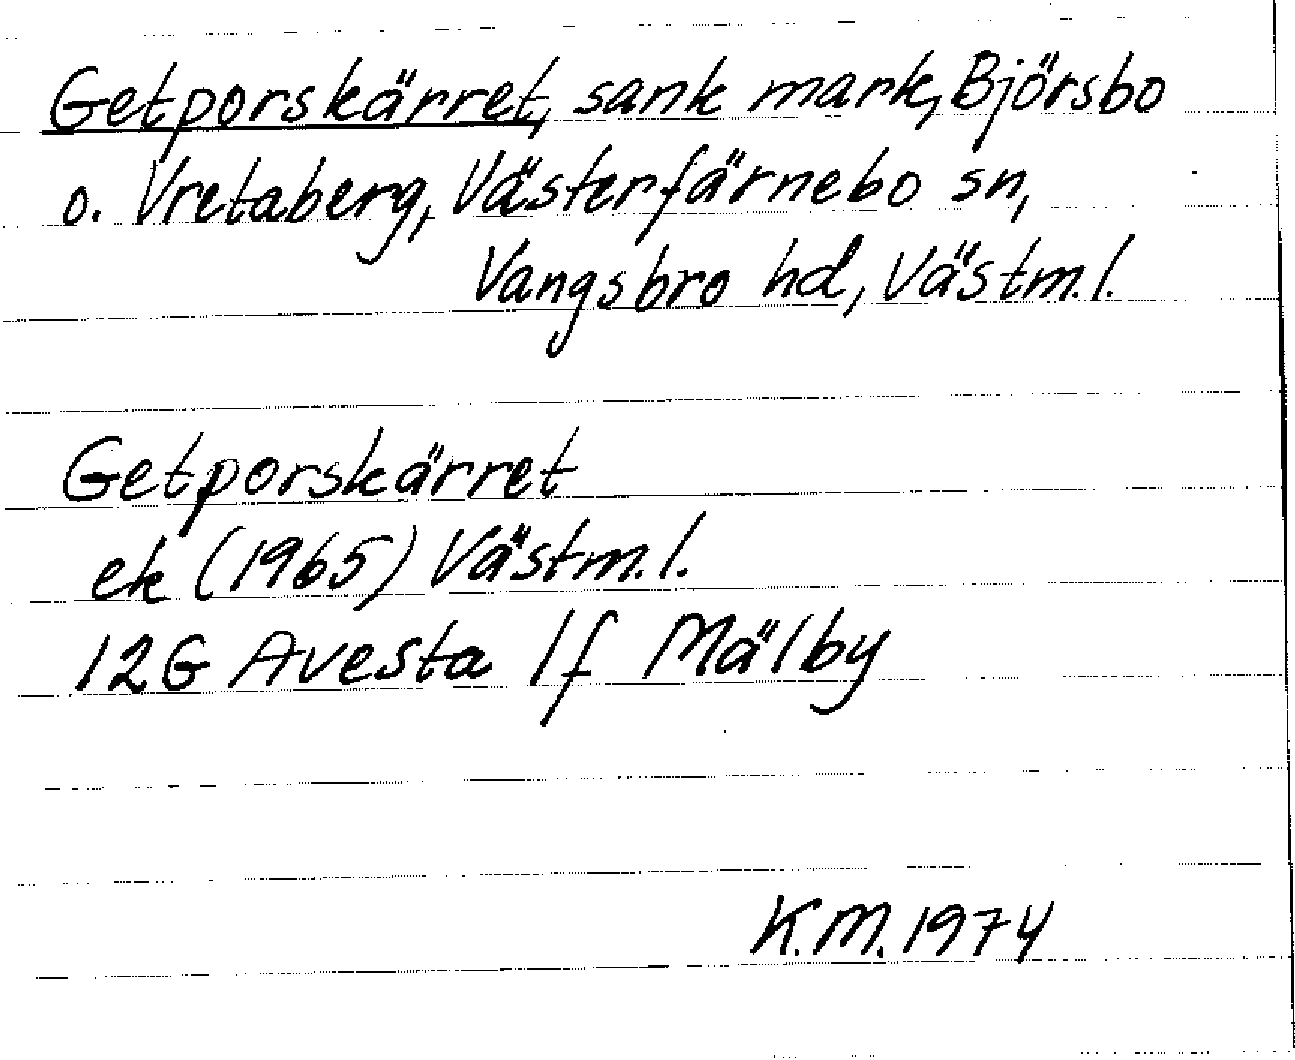 Getporskärret, sank mark, Björsbo
o. Vretaberg, Västerfärnebo sn,
Vangsbro hd, Västm.l.
Getporskärret
ek (1965) Västm.l.
12G Avesta 1f Mälby
K.M. 1974